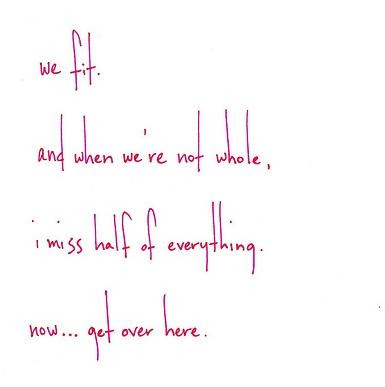 we fit.
and when we're not whole,
i miss half of everything.
now... get over here.